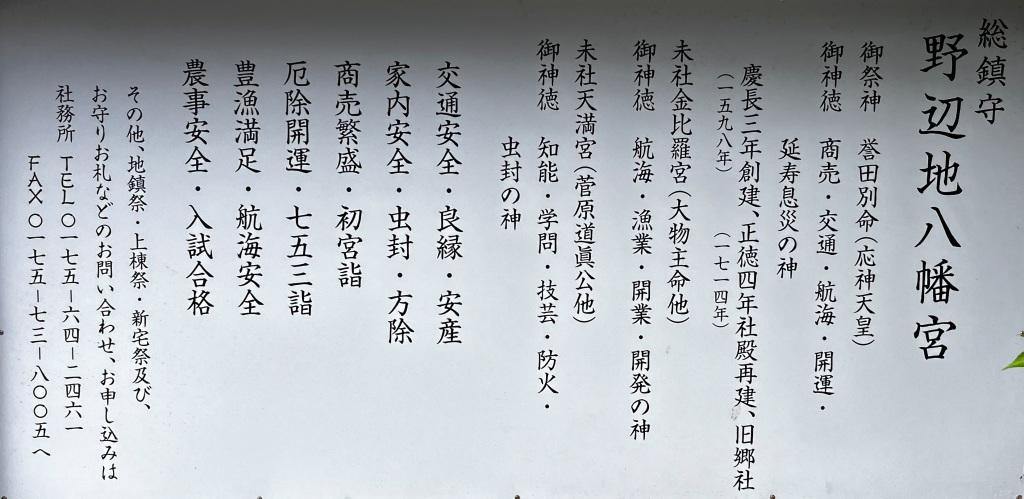 総鎮守
野辺地八幡宮
御祭神　誉田別命（応神天皇）
御神徳　商売・交通・航海・開運・
延寿息災の神
慶長三年創建、正徳四年社殿再建、旧郷社
（一五九八年）　（一七一四年）
末社金比羅宮（大物主命他）
御神徳　航海・漁業・開業・開発の神
末社天満宮（菅原道眞公他）
御神徳　知能・学問・技芸・防火・
虫封の神
交通安全・良縁・安産
家内安全・虫封・方除
商売繁盛・初宮詣
厄除開運・七五三詣
豊漁満足・航海安全
農事安全・入試合格
その他、地鎮祭・上棟祭・新宅祭及び、
お守りお札などのお問い合わせ、お申し込みは
社務所　ＴＥＬ〇一七五－六四－二四六一
ＦＡＸ〇一七五－七三－八〇〇五へ